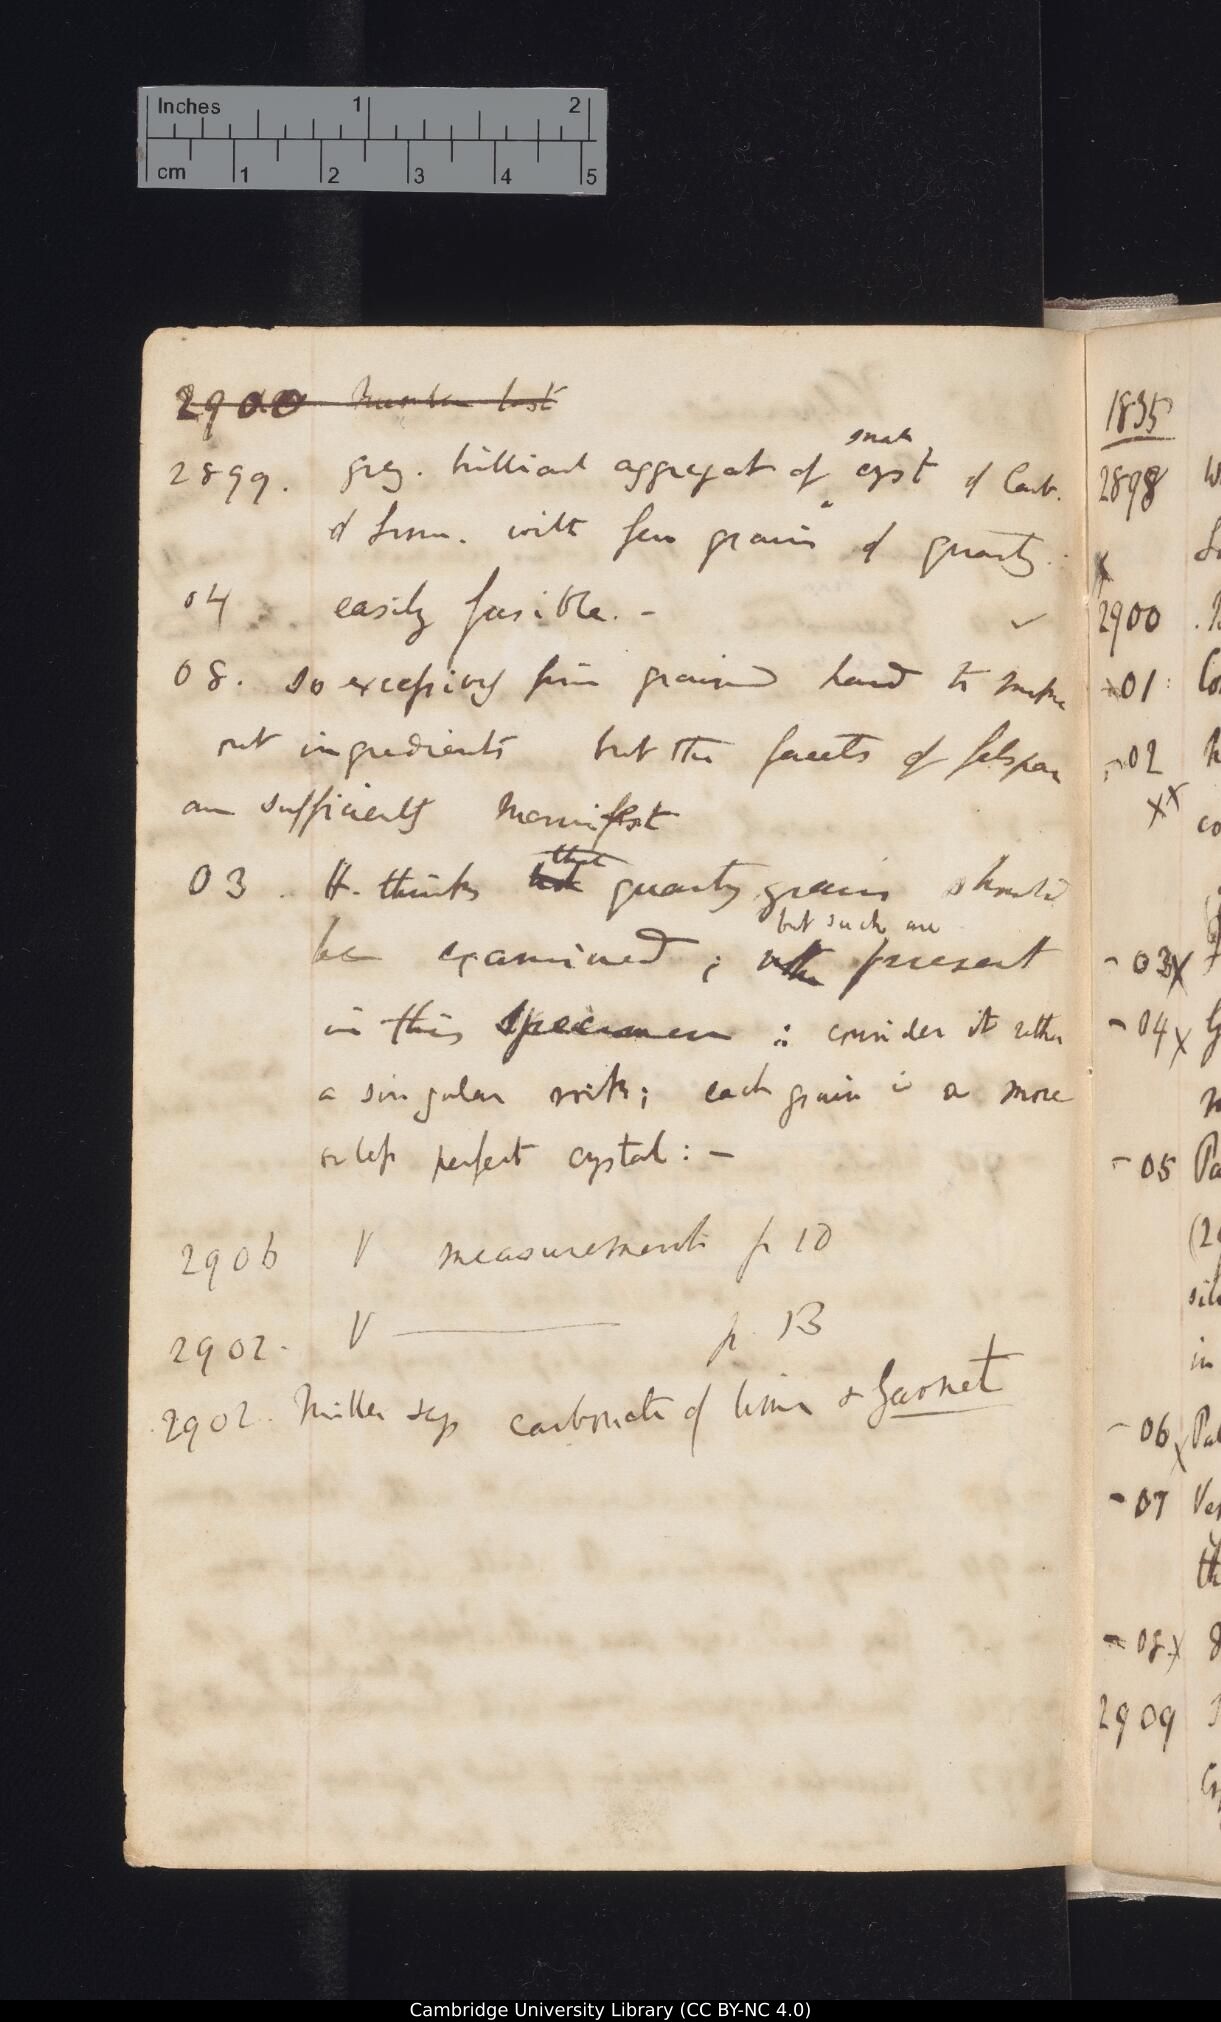 Inches 1 2
cm 1 2 3 4 5
2900 Number lost
small
2899. grey. brilliant aggregat of cryst of Carb.
of Lime. with few grains of quartz.
04 easily fusible. –
08. so excessively fine grained hard to make
out ingredients but the facets of felspar
are sufficiently manifest
that
03. H. thinks quartz grains should
but such are
be examined; present
in this specimen : consider it rather
a singular rock; each grain is a more
or less perfect crystal: –
2906 V measurements p 10
2902. V ——— p. 13
2902. Miller says carbonate of lime & Garnet
1835
2898
x
2900
-01
-02
xx
co
-03x
-04x
-05 Pa
(2
sil
in
-06x Pal
-07 Ves
th
-08x
2909
Cambridge University Library (CC BY-NC 4.0)